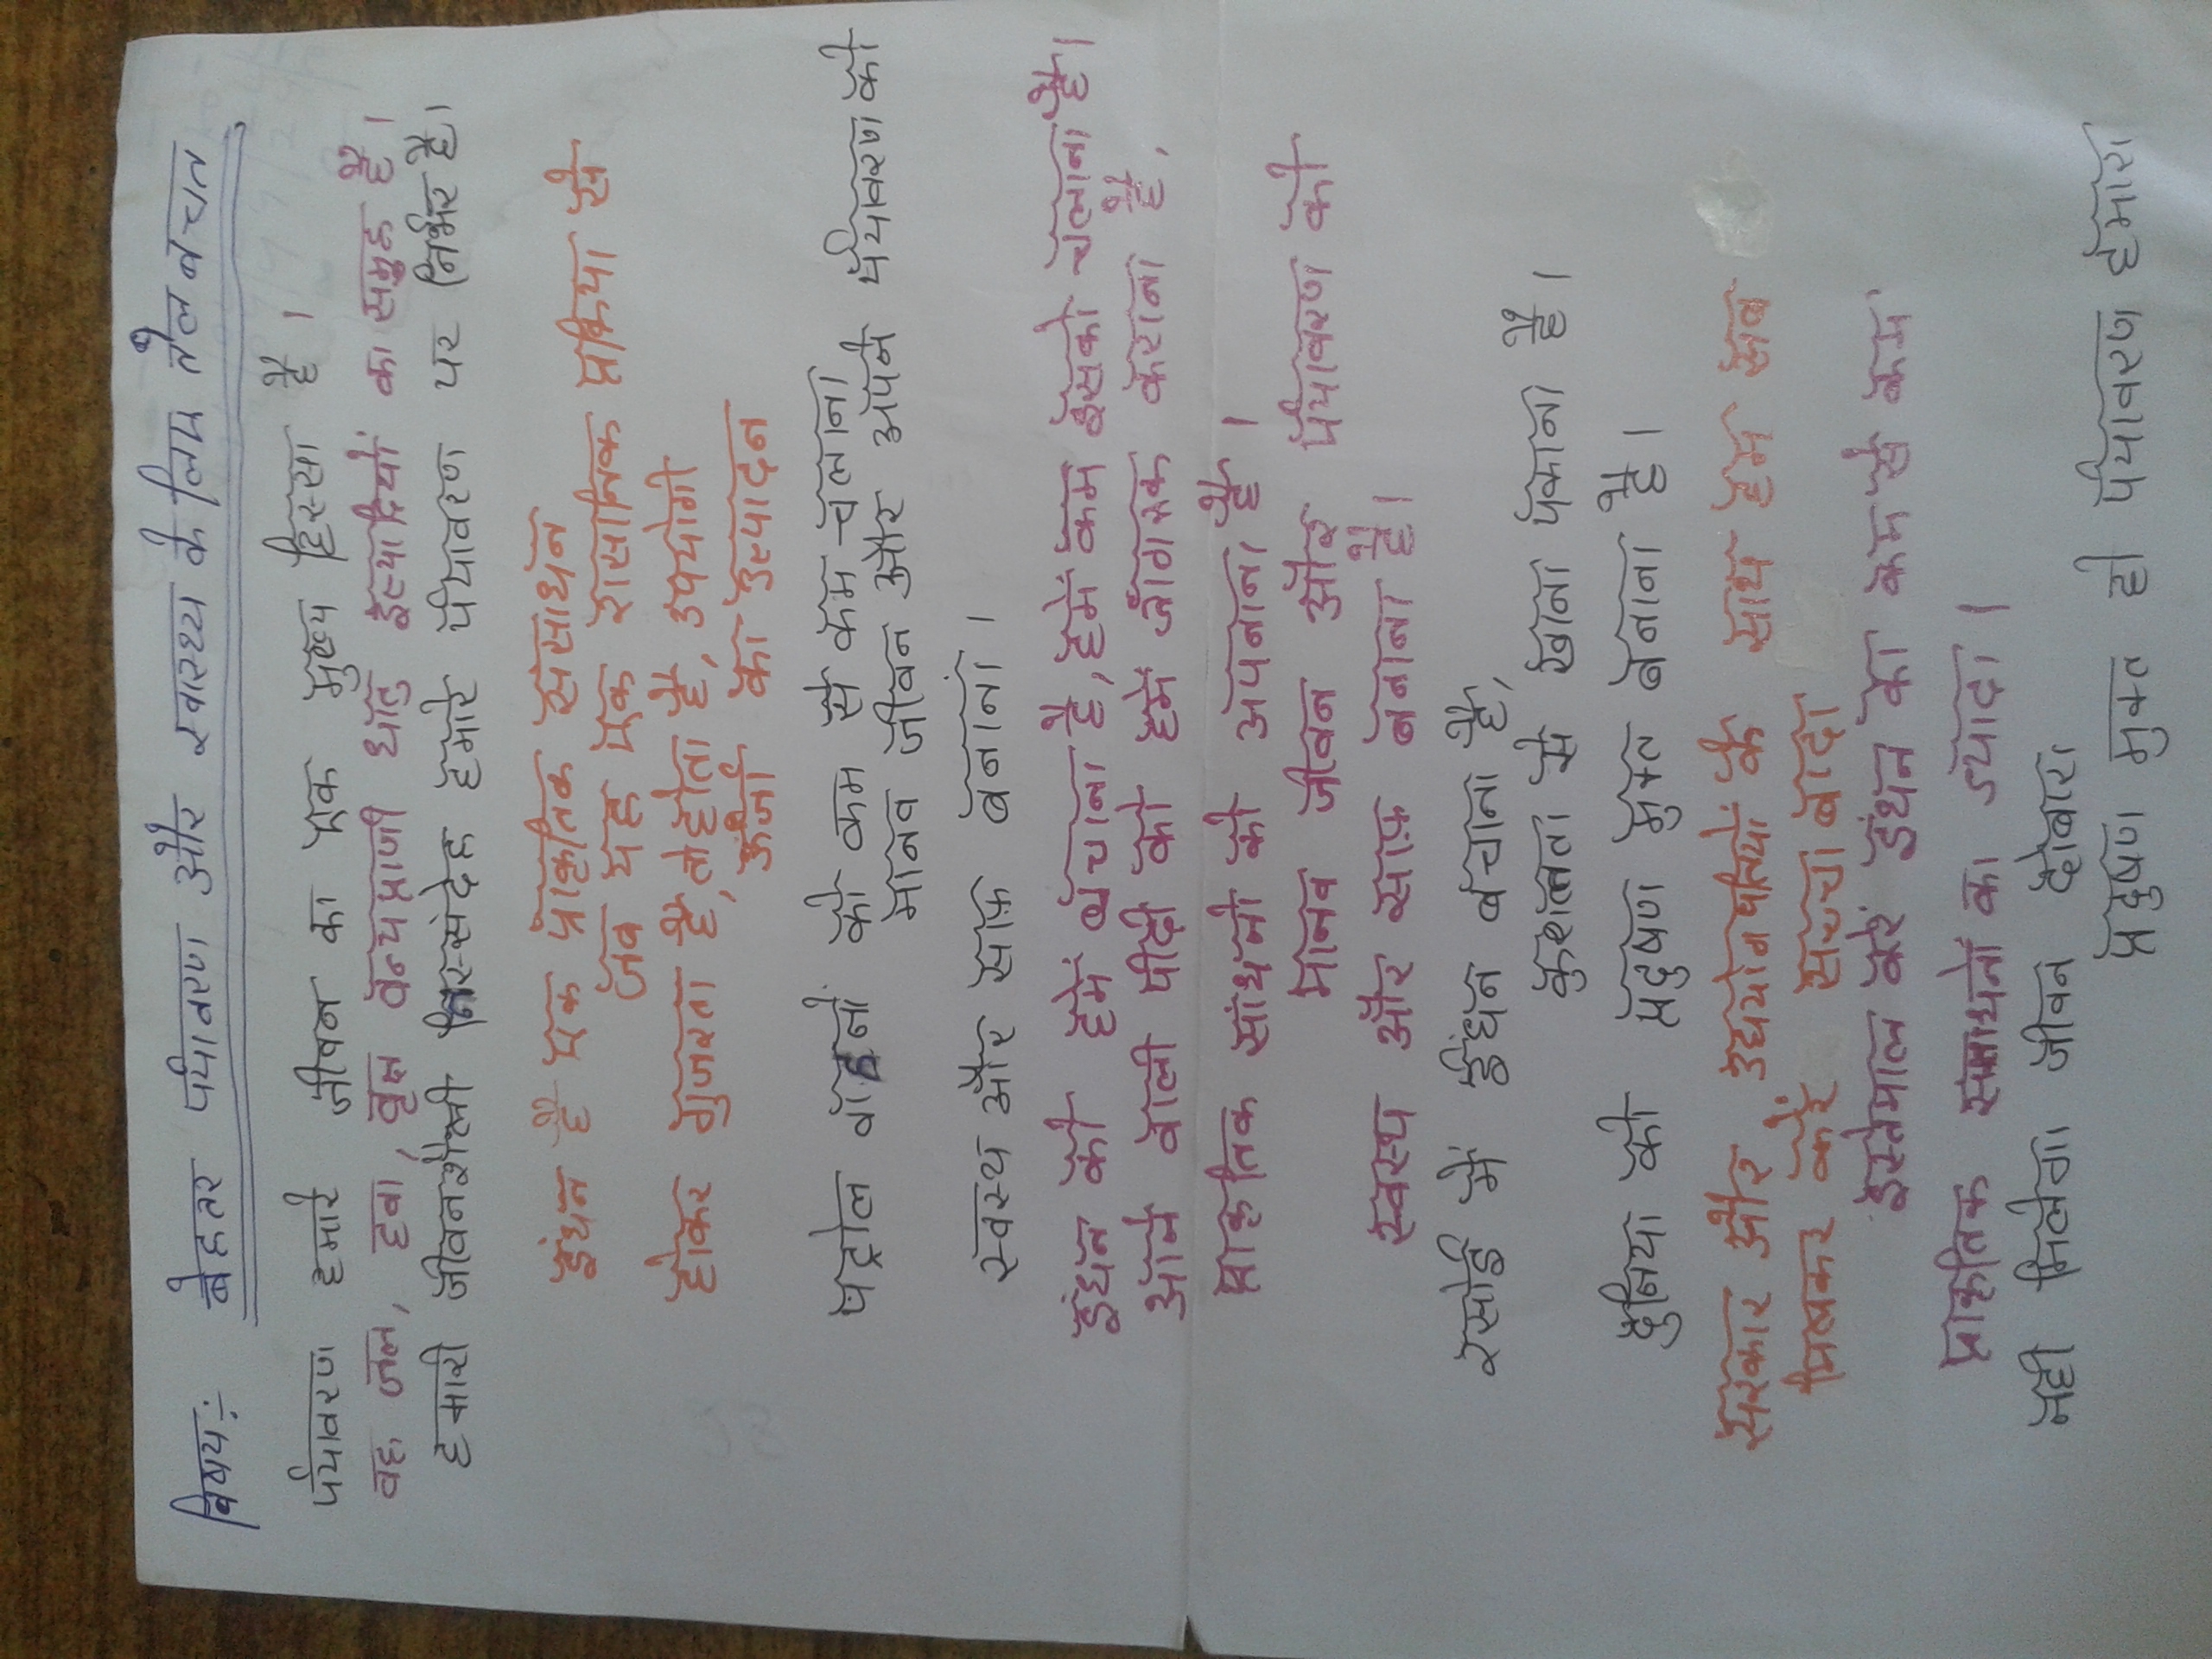 विषय:- बेहतर पंर्यावरण और स्वास्थ्य के लिए तेल बचत
पर्यावरण हमारे जीवन का एक मुख्य हिस्सा है ।
वह जल, हवा, वृक्ष वन्यप्राणी धातु इत्यादियों का समुह है ।
हमारी जीवनशैली निस्संदेह हमारे पर्यावरण पर निर्भर है।
ईंधन है एक प्राकृतिक संसाधन
जब यह एक रासानिक प्रक्रिया से
होकर गुजरता है, तो होता है, उपयोगी
ऊर्जा का उत्पादन
पेट्रोल वाहनो को कम से कम चलाना
मानव जीवन और अपने पर्यावरण को
स्वस्थ और साफ़ बनाना।
ईंधन को हमें बचाना है, हमें कम इसको चलाना है।
आने वाली पीढी को हमें जागरुक कराना है,
प्राकृतिक साधनो को अपनाना है ।
मानव जीवन और पर्यावरण को
स्वस्थ और साफ़ बनाना है।
रसोई में ईंधन बचाना है,
कुशलता से खाना पकाना है ।
दुनिया को प्रदुषण मुक्त बनाना है।
सरकार और उद्योगपतियों के साथ हम सब
मिलकर करें सच्चा वादा
इस्तेमाल करें ईंधन का कम से कम
प्राकृतिक साधनों का ज्यादा ।
नही मिलेगा जीवन दोबारा
प्रदुषण मुक्त हो पर्यावरण हमारा